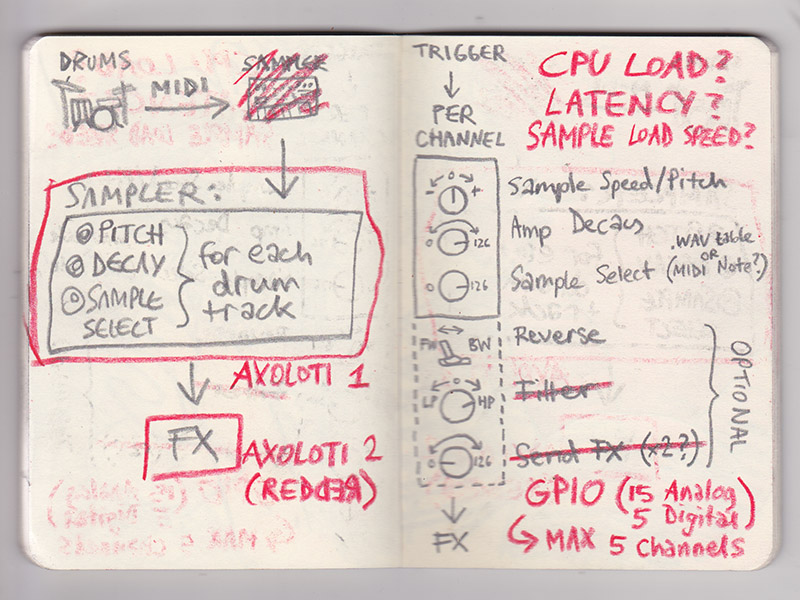 DRUMS
MIDI
SAMPLER
SAMPLER:
PITCH
DECAY
SAMPLE
SELECT
for each
drum
track
AXOLOTI 1
FX
AXOLOTI 2
(REDDER)
TRIGGER
PER
CHANNEL
CPU LOAD?
LATENCY?
SAMPLE LOAD SPEED?
- 0 +
Sample Speed/Pitch
0 126
Amp Decay
0 126
Sample Select (.WAV table
OR
MIDI Note?)
FW BW
Reverse
LP 0 HP
Filter
0 126
Send FX (x2?)
OPTIONAL
FX
GPIO (15 Analog
5 Digital)
MAX 5 Channels